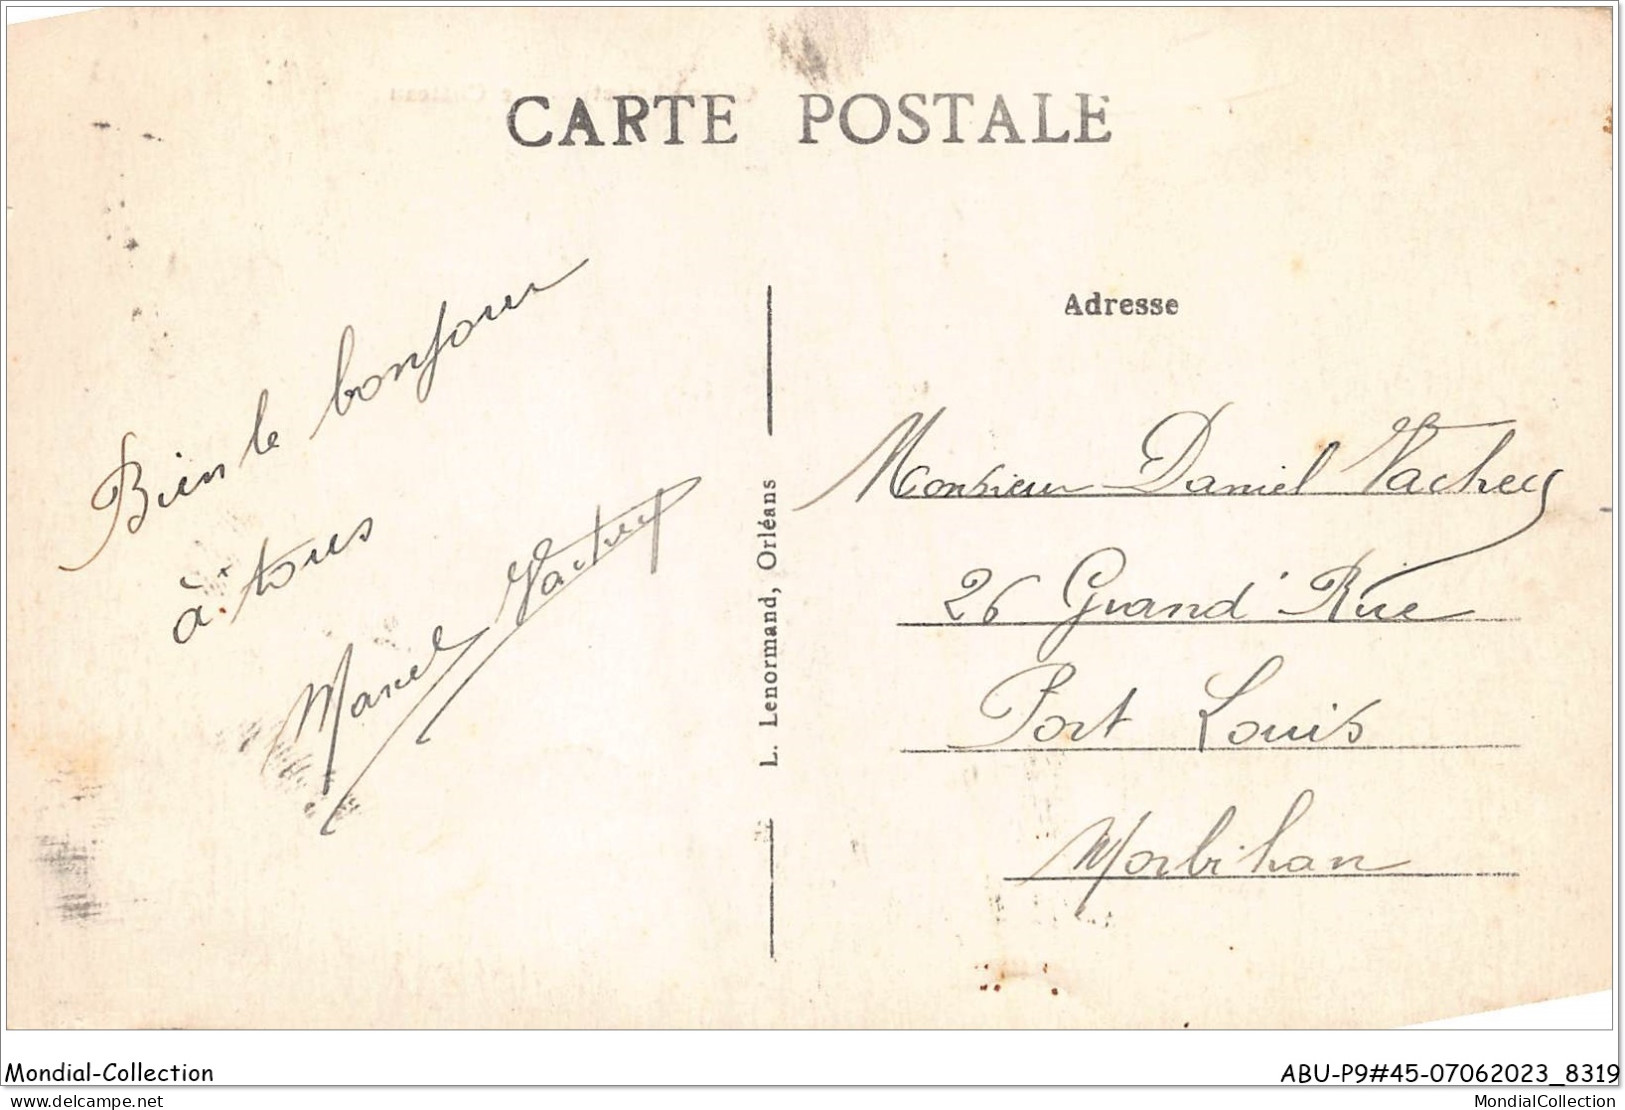 CARTE POSTALE
Bien le bonjour
à tous
Marcel Vachey
L. Lenormand, Orléans
Adresse
Monsieur Daniel Vachey
26 Grand' Rue
Port Louis
Morbihan
Mondial-Collection
ABU-P9#45-07062023_8319
delcampe.net
MondialCollection